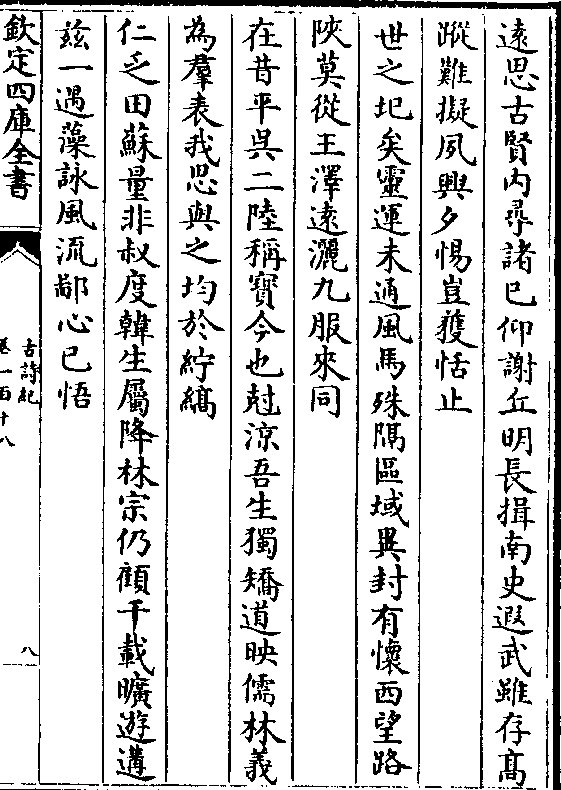 遠思古賢内尋諸已仰謝丘明長揖南史遐武雖存髙
蹤難擬夙興夕惕豈獲恬止
世之圯矣靈運未通風馬殊隔區域異封有懷西望路
陜莫從王澤遠灑九服來同
在昔平吳二陸稱寶今也尅涼吾生獨矯道映儒林義
為羣表我思與之均於紵縞
仁乏田蘇量非叔度韓生屬降林宗仍顧千載曠遊遘
兹一遇藻詠風流鄙心已悟
欽定四庫全書
古詩紀
卷一百十八
八